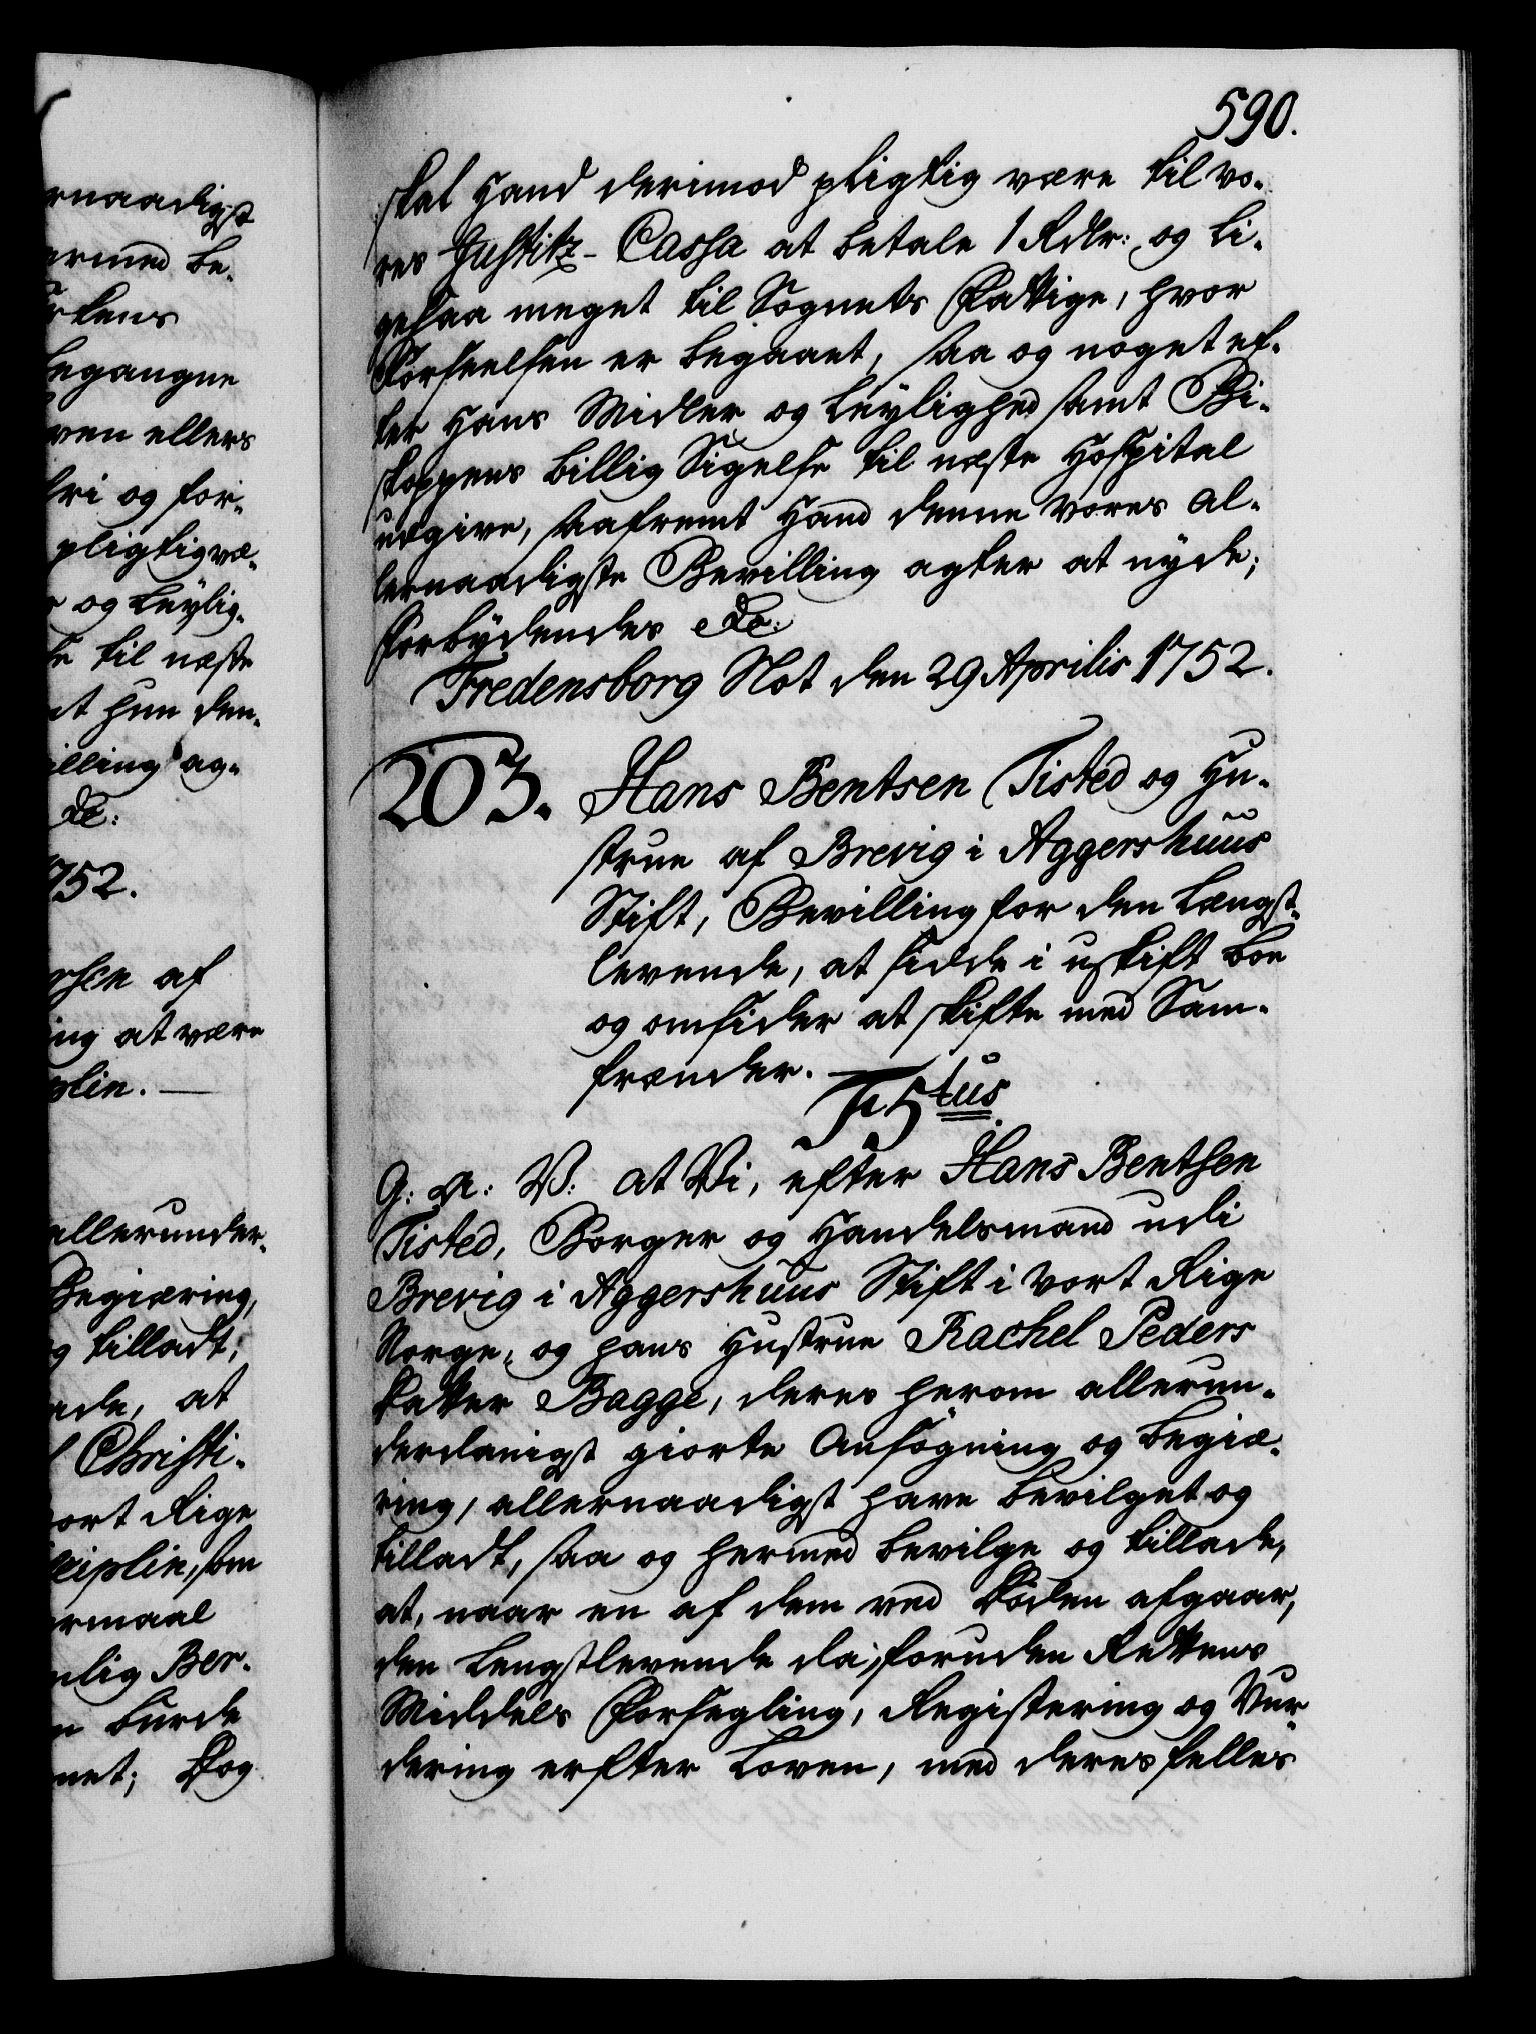 590.
skal Hand derimod pligtig være til vo-
res Justitz-Cassa at betale 1 Rdlr: og li-
gesaa meget til Sognets Fattige, hvor
Forseelsen er begaaet, saa og noget ef-
ter Hans Midler og Leylighed samt Bi-
skoppens billig Sigelse til næste Hospital
udgive, saafremt Hand denne vores al-
lernaadigste Bevilling agter at nyde;
Forbydendes &c:
Fredensborg Slot den 29 Aprilis 1752.
203. Hans Bentsen Tisted og Hu-
strue af Brevig i Aggershuus
Stift, Bevilling for den Længst-
levende, at sidde i uskift boe
og omsider at skifte med Sam-
frænder.
F 5tus.
G: A: V: at Vi, efter Hans Bentsen
Tisted, Borger og Handelsmand udi
Brevig i Aggershuus Stift i vort Rige
Norge, og hans Hustrue Rachel Peders
Datter Bagge, deres herom allerun-
derdanigst giorte Ansøgning og begiæ-
ring, allernaadigst have bevilget og
tilladt, saa og hermed bevilge og tillade,
at, naar en af dem ved Døden afgaar,
den Lengstlevende da, foruden Rettens
Middels Forsegling, Registering og Vur-
dering efter Loven, med deres felles
rnaadigst
ermed be-
rkens
begangne
ven ellers
fri og for-
pligtig væ-
r og Leylig-
se til næste
at hun den-
illing ag-
&c:
752.
rsen af
ing at være
plin.
allerunder-
Begiæring,
og tilladt,
ade, at
l Christi-
vort Rige
ciplin, som
ermaal
nlig Ber-
burde
net; Dog